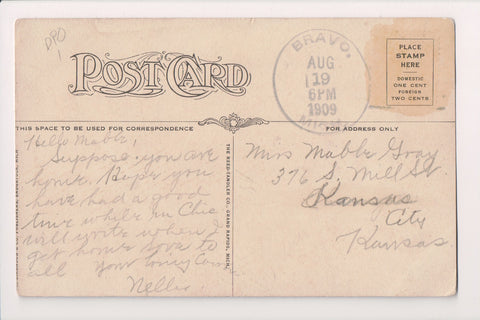 DPO
1
POST CARD
BRAVO,
AUG
19
6PM
1909
MICH.
PLACE
STAMP
HERE
DOMESTIC
ONE CENT
FOREIGN
TWO CENTS
THIS SPACE TO BE USED FOR CORRESPONDENCE
FOR ADDRESS ONLY
Hello Mable,
Suppose you are
home. Hope you
have had a good
time while in Chic
will write when I
get home love to
all Your loving
Nellie
THE REED-TANDLER CO., GRAND RAPIDS, MICH.
Miss Mable Gray
376 S. Mill St.
Kansas
City
Kansas